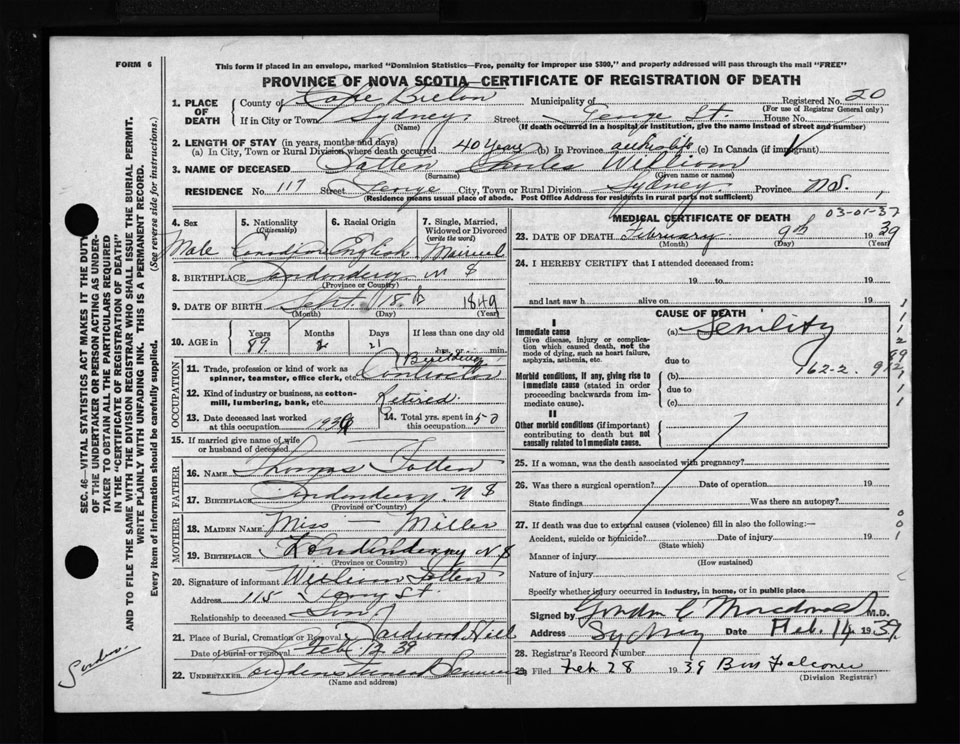 FORM 6
This form if placed in an envelope, marked "Dominion Statistics—Free, penalty for improper use $300," and properly addressed will pass through the mail "FREE"
PROVINCE OF NOVA SCOTIA—CERTIFICATE OF REGISTRATION OF DEATH
1. PLACE OF DEATH
County of Cape Breton Municipality of Registered No. 20
(For use of Registrar General only)
If in City or Town Sydney Street George St. House No.
(Name) (If death occurred in a hospital or institution, give the name instead of street and number)
2. LENGTH OF STAY (in years, months and days)
(a) In City, Town or Rural Division where death occurred 40 years (b) In Province (c) In Canada (if immigrant)
3. NAME OF DECEASED Totten William
(Surname) (Given name or names)
RESIDENCE No. 117 Street George City, Town or Rural Division Sydney Province N.S.
(Residence means usual place of abode. Post Office Address for residents in rural parts not sufficient)
4. Sex Male
5. Nationality (Citizenship) Canadian
6. Racial Origin English
7. Single, Married, Widowed or Divorced (write the word) Married
8. BIRTHPLACE Londonderry N S
(Province or Country)
9. DATE OF BIRTH Sept. 18 1849
(Month) (Day) (Year)
10. AGE in Years 89 Months Days 21 If less than one day old
hrs. min.
OCCUPATION
11. Trade, profession or kind of work as spinner, teamster, office clerk, etc. Building Contractor
12. Kind of industry or business, as cotton-mill, lumbering, bank, etc. Retired
13. Date deceased last worked at this occupation
14. Total yrs. spent in this occupation 50
15. If married give name of wife or husband of deceased
FATHER
16. NAME Thomas Totten
17. BIRTHPLACE Londonderry N S
(Province or Country)
MOTHER
18. MAIDEN NAME Miss — Miller
19. BIRTHPLACE Londonderry N.S
(Province or Country)
20. Signature of informant William Totten
Address 115 St.
Relationship to deceased Son
21. Place of Burial, Cremation or Removal Hardwood Hill
Date of burial or removal Feb. 12 39
22. UNDERTAKER
(Name and address)
MEDICAL CERTIFICATE OF DEATH
03-01-37
23. DATE OF DEATH February 9th 1939
(Month) (Day) (Year)
24. I HEREBY CERTIFY that I attended deceased from:
19 to 19
and last saw h alive on 19
CAUSE OF DEATH
I
Immediate cause (a) Senility
Give disease, injury or complication which caused death, not the mode of dying, such as heart failure, asphyxia, asthenia, etc.
due to
162-2.
Morbid conditions, if any, giving rise to immediate cause (stated in order proceeding backwards from immediate cause).
(b)
due to
(c)
II
Other morbid conditions (if important) contributing to death but not causally related to immediate cause.
25. If a woman, was the death associated with pregnancy?
26. Was there a surgical operation? Date of operation 19
State findings Was there an autopsy?
27. If death was due to external causes (violence) fill in also the following:—
Accident, suicide or homicide? Date of injury 19
(State which)
Manner of injury
(How sustained)
Nature of injury
Specify whether injury occurred in industry, in home, or in public place
Signed by Gordon C Macdonald M.D.
Address Sydney Date Feb. 14 1939
28. Registrar's Record Number
29. Filed Feb 28 1939 Falconer
(Division Registrar)
SEC. 46—VITAL STATISTICS ACT MAKES IT THE DUTY OF THE UNDERTAKER OR PERSON ACTING AS UNDERTAKER TO OBTAIN ALL THE PARTICULARS REQUIRED IN THE "CERTIFICATE OF REGISTRATION OF DEATH" AND TO FILE THE SAME WITH THE DIVISION REGISTRAR WHO SHALL ISSUE THE BURIAL PERMIT.
WRITE PLAINLY WITH UNFADING INK. THIS IS A PERMANENT RECORD.
Every item of information should be carefully supplied. (See reverse side for instructions.)